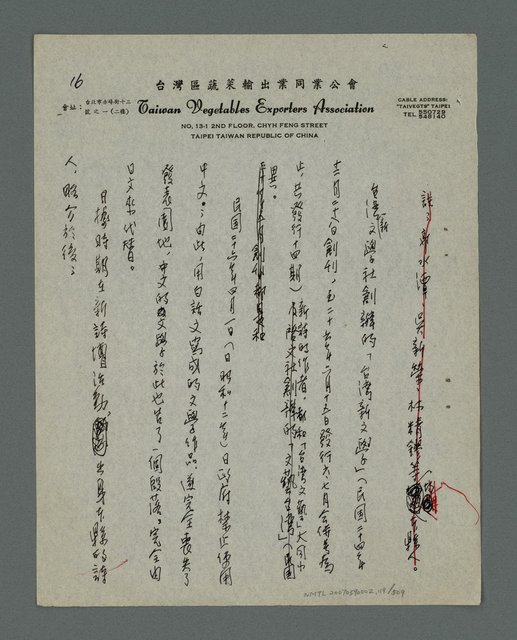 16
台灣區蔬菜輸出業同業公會
會址：台北市赤峰街十三號之一(二樓)
Taiwan Vegetables Exporters Association
CABLE ADDRESS:
"TAIVEGTS" TAIPEI
TEL 550729
548140
NO. 13-1 2ND FLOOR, CHYH FENG STREET
TAIPEI TAIWAN REPUBLIC OF CHINA
水潭、吳新榮、林精鏐等 縣人。
台灣新文學社創辦的「台灣新文學」(民國二十四年
十二月二十八日創刊，至二十六年六月十五日發行六、七月合併號為
止，共發行十四期)新詩的作者，都和「台灣文藝」大同小
異。
民國二十六年四月一日(日昭和十二年)日政府禁止使用
中文。由此，用白話文寫成的文學作品，遂完全喪失了
發表園地，中文的文學於此也告了一個段落。完全由
日文代替。
日據時期在新詩壇活動 出身本縣的詩
人，略介於後：
NMTL 20070590002